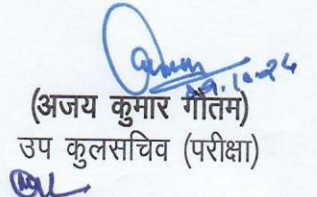 29.10.24
(अजय कुमार गौतम)
उप कुलसचिव (परीक्षा)